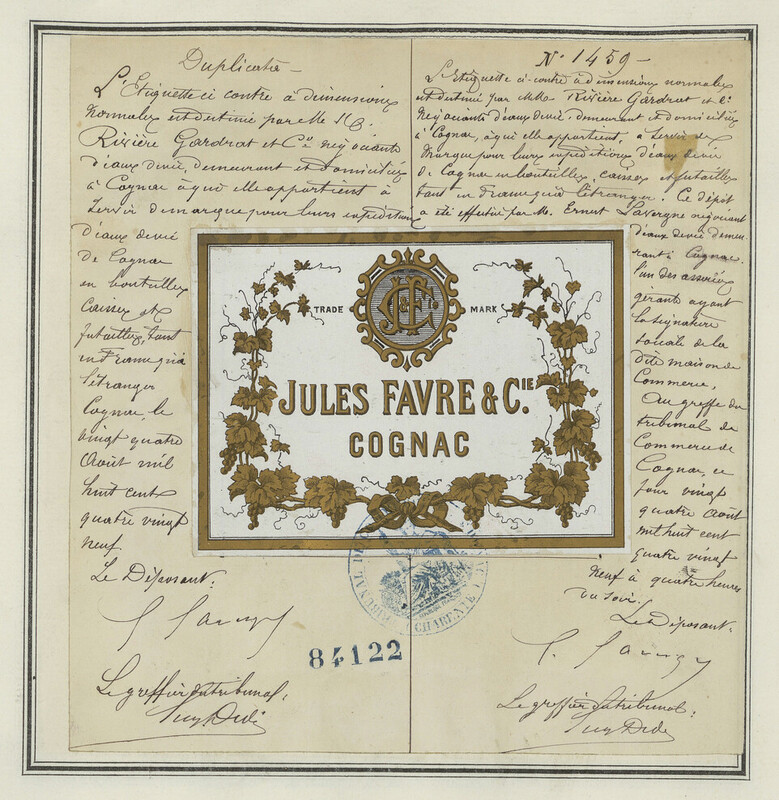 Duplicata
L'Etiquette ci contre à dimensions
Normales est destiné par MM
Rivière Gardrat et Cie négociants
d'eaux devie, demeurant et domiciliés
à Cognac à qui elle appartient à
Servir de marque pour leurs expéditions
d'eaux devie
de Cognac
en bouteilles
Caisses et
futailles, tant
en France qu'à
l'étranger
Cognac, le
vingt quatre
Août mil
huit cent
quatre vingt
neuf.
Le Déposant:
Le greffier du tribunal:
No 1459
L'Etiquette ci-contre à dimensions normales
est destiné par MM. Rivière Gardrat et Cie
Négociants d'eaux devie, demeurant et domiciliés
à Cognac, à qui elle appartient, à Servir de
Marque pour leurs expéditions d'eaux devie
de Cognac en bouteilles, caisses et futailles
tant en France qu'à l'étranger. Ce dépôt
a été effectué par M. Ernest Lavergne négociant
d'eaux devie demeu-
rant à Cognac.
l'un des associés
gérants ayant
la signature
sociale de la
dite maison de
Commerce,
Au greffe du
tribunal de
Commerce de
Cognac, ce
jour vingt
quatre Août
mil huit cent
quatre vingt
neuf à quatre heures
du soir.
Le Déposant:
Le greffier du tribunal:
TRADE MARK
JULES FAVRE & CIE
COGNAC
CHARENTE
84122